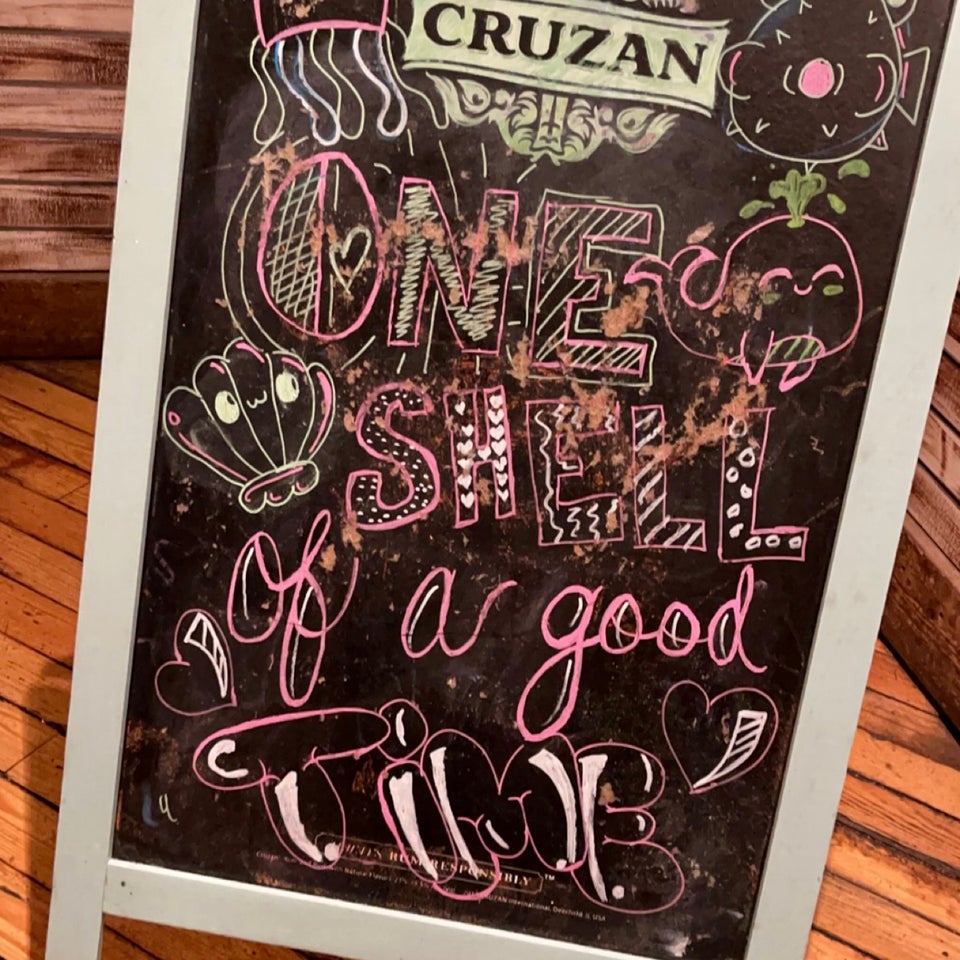 CRUZAN
ONE
SHELL
of a good
TIME
RUM RESPONSIBLY™
CRUZAN International, Deerfield, IL USA